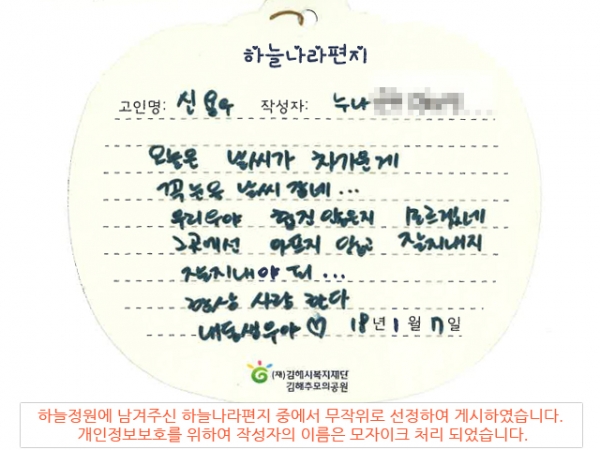 하늘나라편지
고인명: 신용우 작성자: 누나
오늘은 날씨가 차가운게
꼭 눈올 날씨 같네...
우리우야 춥진 않은지 모르겠네
그곳에선 아프지 않고 잘지내지
잘지내야 돼...
항상 사랑 한다
내동생우야 ♡ 18년 1월 17일
(재)김해시복지재단
김해추모의공원
하늘정원에 남겨주신 하늘나라편지 중에서 무작위로 선정하여 게시하였습니다.
개인정보보호를 위하여 작성자의 이름은 모자이크 처리 되었습니다.